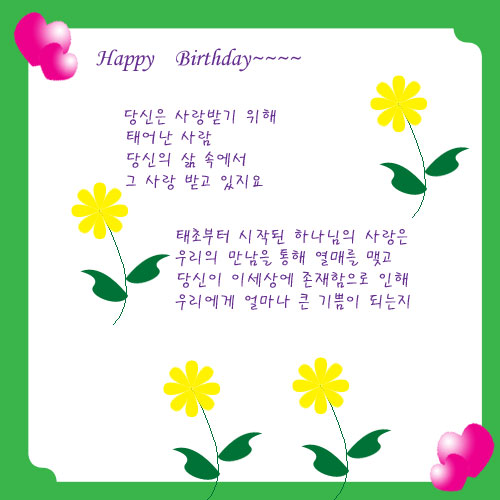 Happy Birthday~~~~
당신은 사랑받기 위해
태어난 사람
당신의 삶 속에서
그 사랑 받고 있지요
태초부터 시작된 하나님의 사랑은
우리의 만남을 통해 열매를 맺고
당신이 이세상에 존재함으로 인해
우리에게 얼마나 큰 기쁨이 되는지